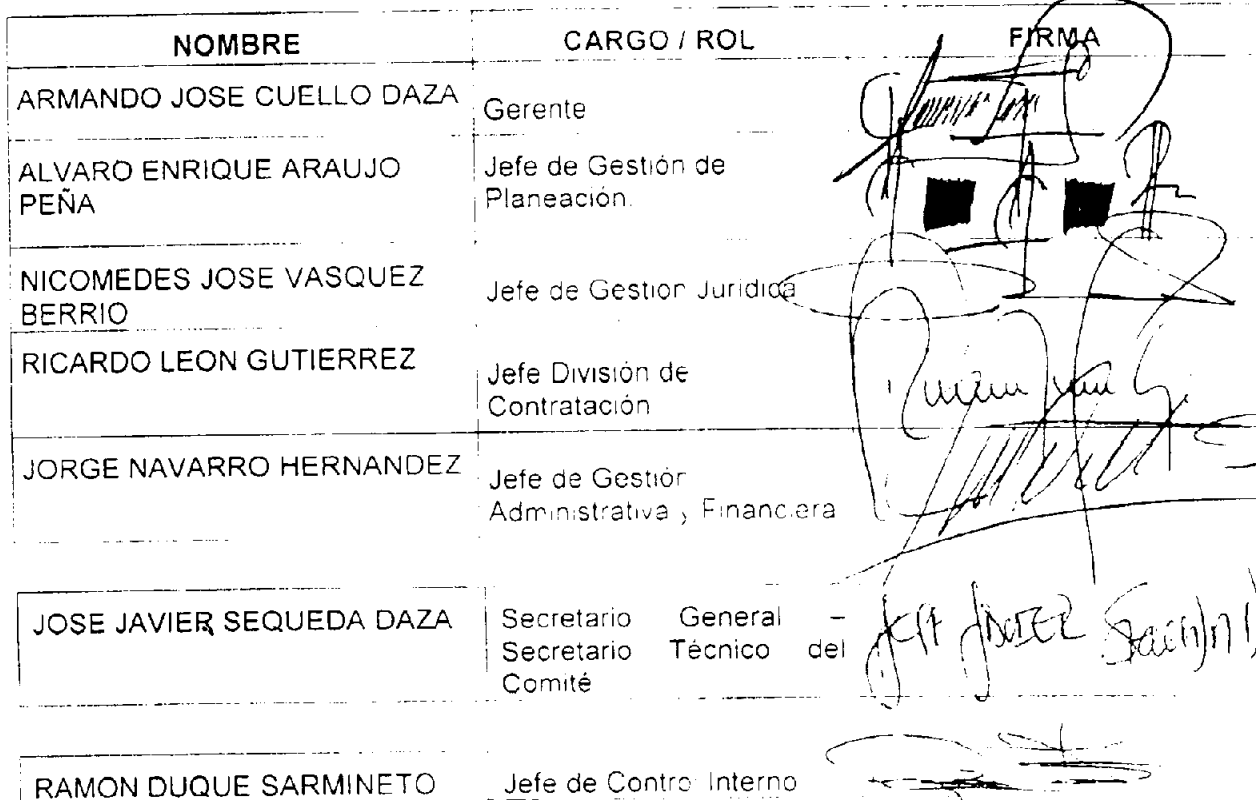 NOMBRE CARGO / ROL FIRMA
ARMANDO JOSE CUELLO DAZA Gerente
ALVARO ENRIQUE ARAUJO Jefe de Gestión de
PEÑA Planeación.
NICOMEDES JOSE VASQUEZ Jefe de Gestion Juridica
BERRIO
RICARDO LEON GUTIERREZ Jefe División de
Contratación
JORGE NAVARRO HERNANDEZ Jefe de Gestión
Administrativa y Financiera
JOSE JAVIER SEQUEDA DAZA Secretario General –
Secretario Técnico del
Comité
RAMON DUQUE SARMINETO Jefe de Control Interno